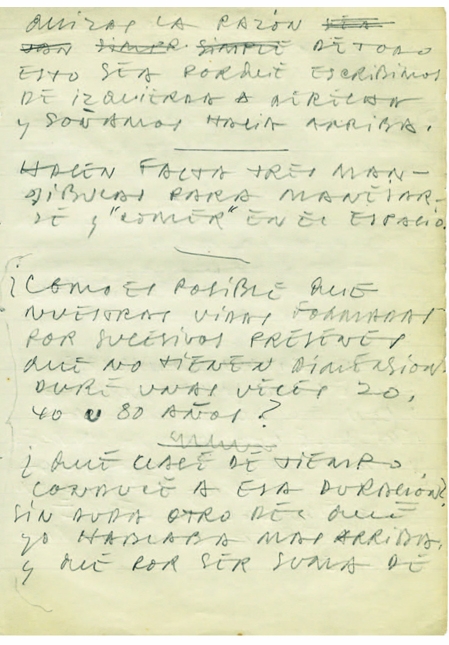 QUIZAS LA RAZÓN SEA
TAN SIMPLE SIMPLE DE TODO
ESTO SEA PORQUE ESCRIBIMOS
DE IZQUIERDA A DERECHA
Y SOÑAMOS HACIA ARRIBA.
HACEN FALTA TRES MAN-
DIBULAS PARA MANEJAR-
SE Y "COMER" EN EL ESPACIO
¿COMO ES POSIBLE QUE
NUESTRAS VIDAS FORMADAS
POR SUCESIVOS PRESENTES
QUE NO TIENEN DIMENSION
DURE UNAS VECES 20,
40 u 80 AÑOS?
¿QUÉ CLASE DE TIEMPO
CONDUCE A ESA DURACIÓN?
SIN DUDA OTRO DEL QUE
YO HABLABA MAS ARRIBA.
Y QUE POR SER SUMA DE